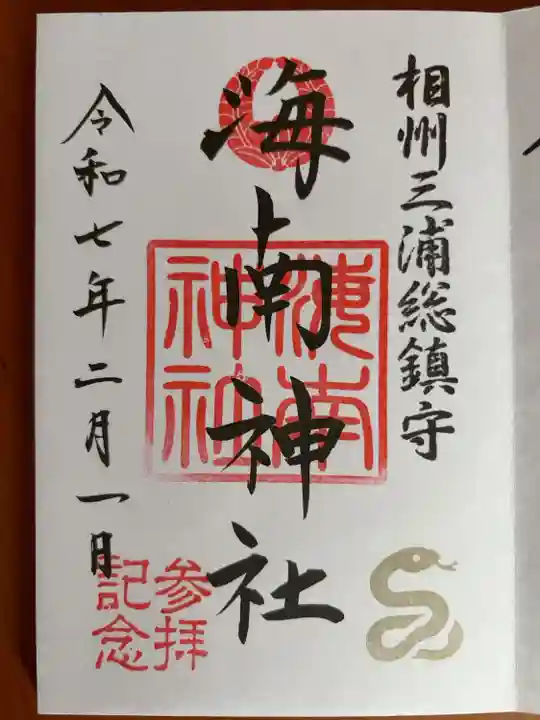 相州三浦総鎮守
海南神社
海南
神社
令和七年二月一日
参拝
記念